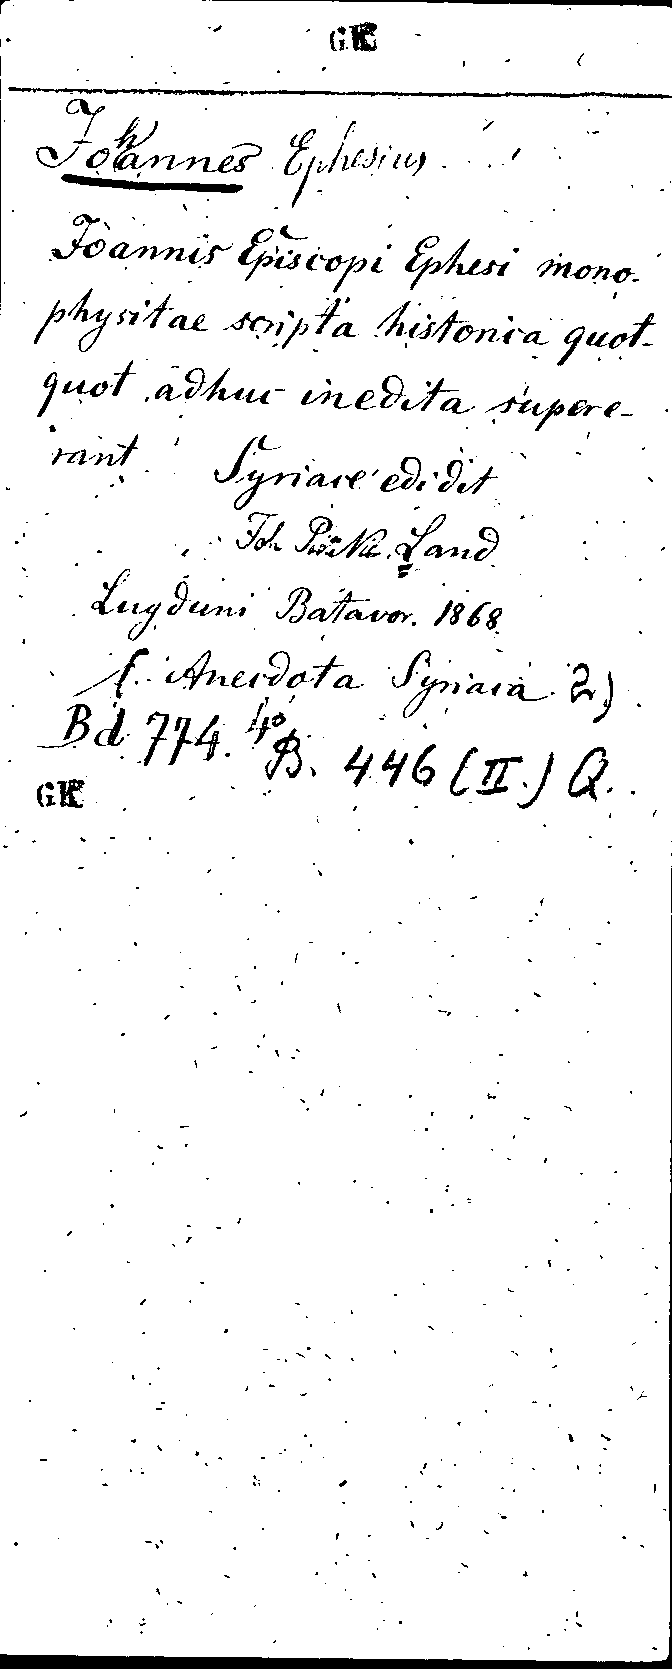 GK
Johannes Ephesius
Joannis Episcopi Ephesi mono-
physitae scripta historica quot-
quot adhuc inedita supere-
rant. Syriace edidit
Joh. Land
Lugduni Batavor. 1868.
(. Anecdota Syriaca 2)
Bd 774. 4º
B. 446 (II.) Q.
GK